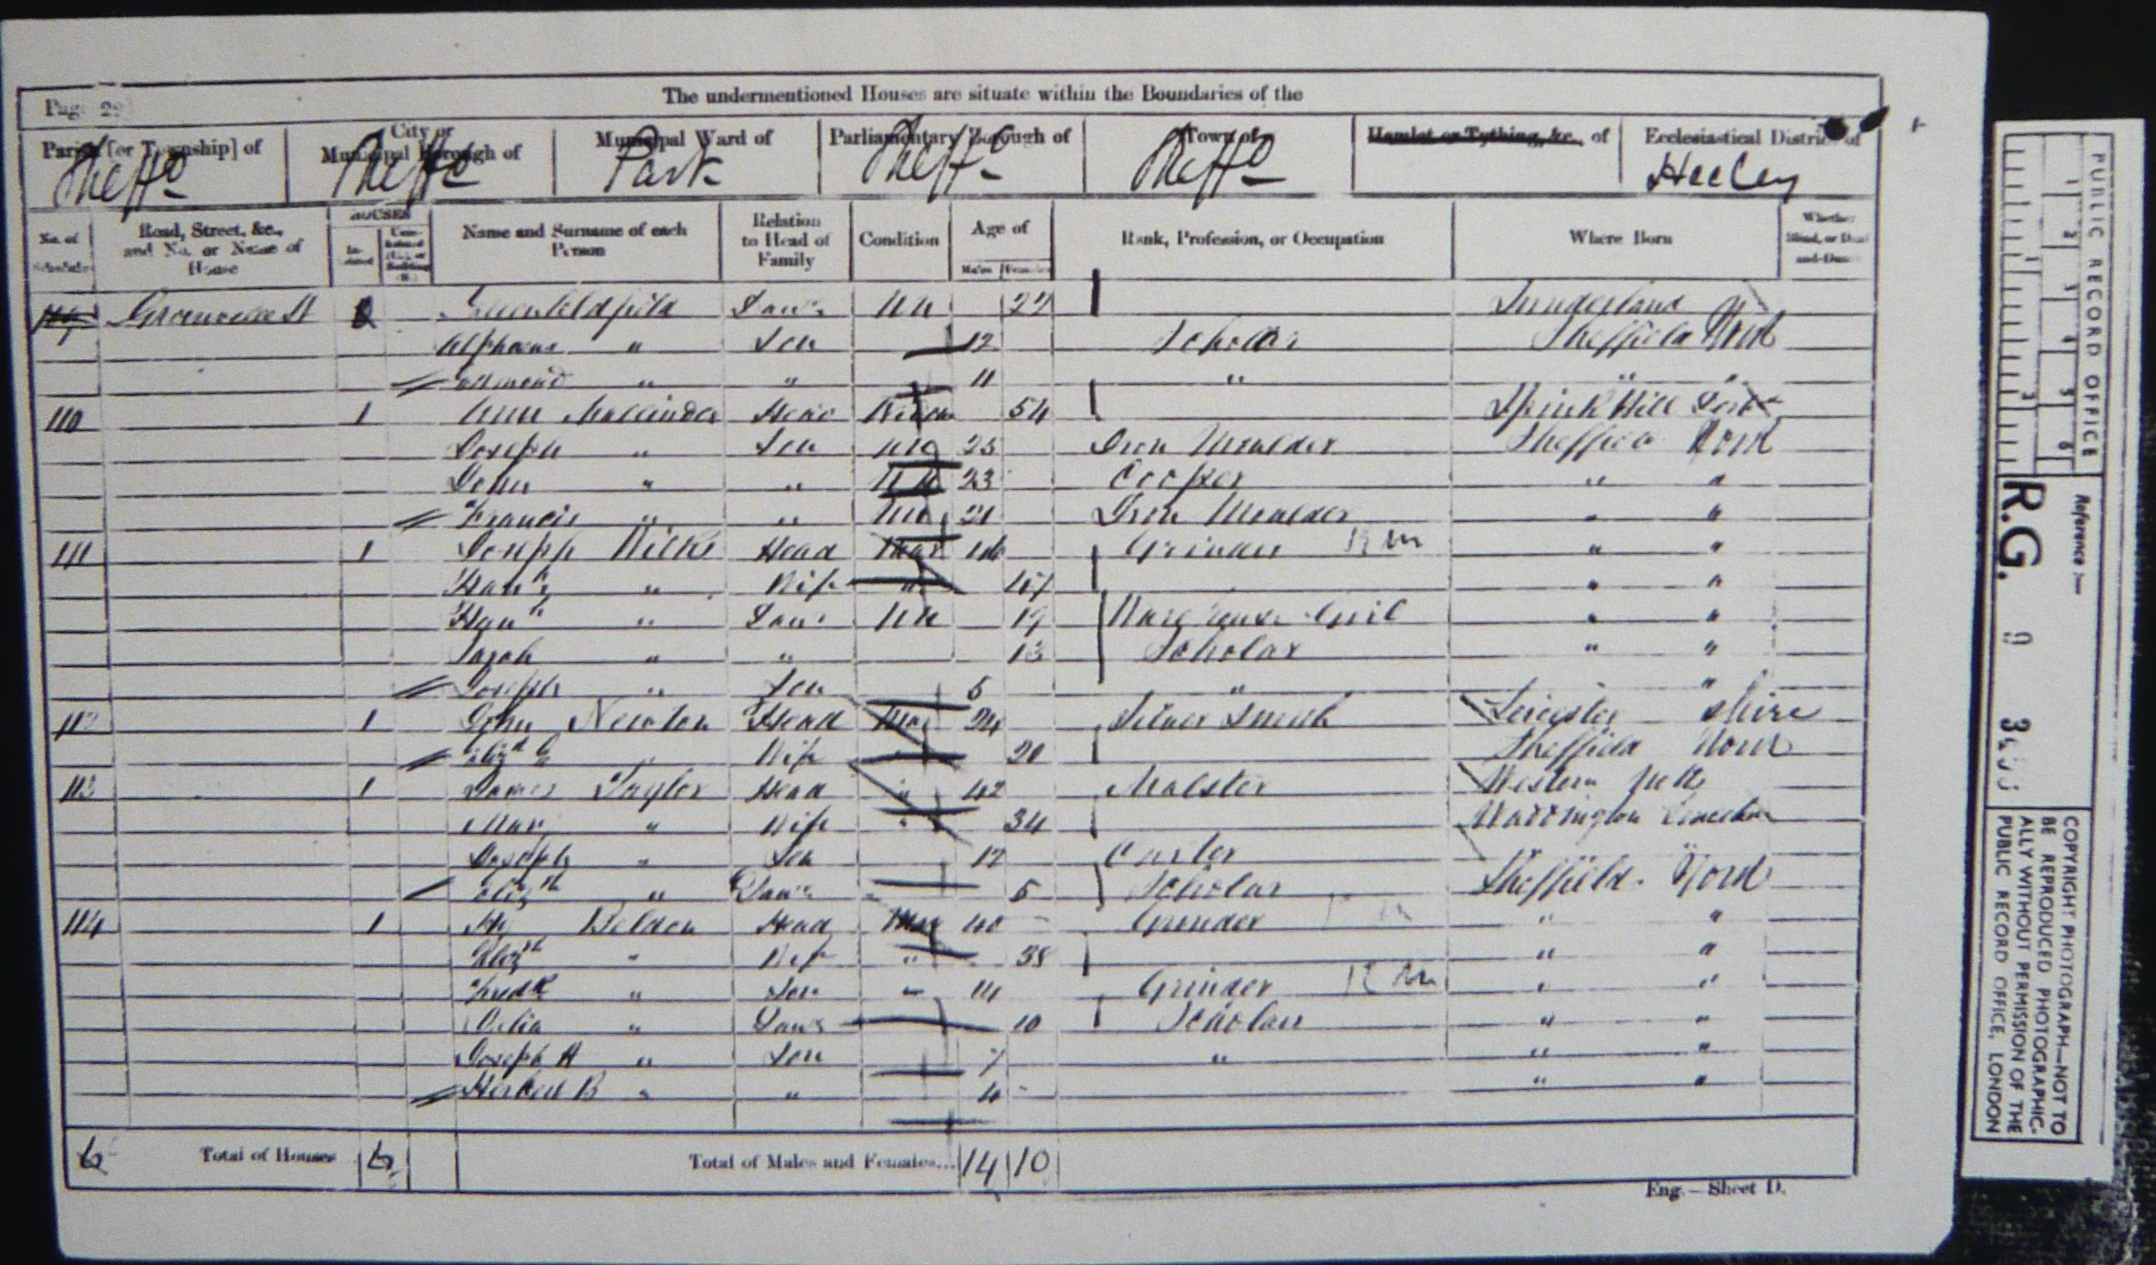 The undermentioned Houses are situate within the Boundaries of the
Page 29
Parish [or Township] of City or Municipal Borough of Municipal Ward of Parliamentary Borough of Town of Hamlet or Tything, &c., of Ecclesiastical District of
Sheffd Sheffd Park Sheffd Sheffd Heeley
No. of Schedule Road, Street, &c., and No. or Name of House HOUSES Inhabited Name and Surname of each Person Relation to Head of Family Condition Age of Males Females Rank, Profession, or Occupation Where Born Whether Blind, or Deaf-and-Dumb
St Daur Un 27 Sunderland
" Son 12 Scholar Sheffield York
" " 11 " " "
110 1 Ann Mallinder Head Widow 54 Spink Hill
Joseph " Son Un 25 Iron Moulder Sheffield York
John " " Un 23 Cooper " "
Francis " " Un 21 Iron Moulder " "
111 1 Joseph Wilks Head Mar Grinder " "
Hanh " Wife " 47 " "
Hanh " Daur Un 19 Warehouse Girl " "
Sarah " " 13 Scholar " "
Joseph " Son 5 " " "
112 1 John Newton Head Mar 24 Silver Smith Leicester shire
Elizth " Wife " 20 Sheffield York
113 1 James Taylor Head " 42 Malster Western
Mary " Wife " 34 Warrington
Joseph " Son 12 " "
Elizth " Daur 5 Scholar Sheffield York
114 1 Beldon Head Mar 40 Grinder " "
Elizth " Wife " 38 " "
Fredk " Son - 14 Grinder " "
" Daur 10 Scholar " "
Joseph H " Son 7 " " "
Herbert B " " 4 " "
6 Total of Houses 6 Total of Males and Females... 14 10
Eng.—Sheet D.
PUBLIC RECORD OFFICE
Reference :—
R.G. 9
COPYRIGHT PHOTOGRAPH—NOT TO
BE REPRODUCED PHOTOGRAPHIC-
ALLY WITHOUT PERMISSION OF THE
PUBLIC RECORD OFFICE, LONDON